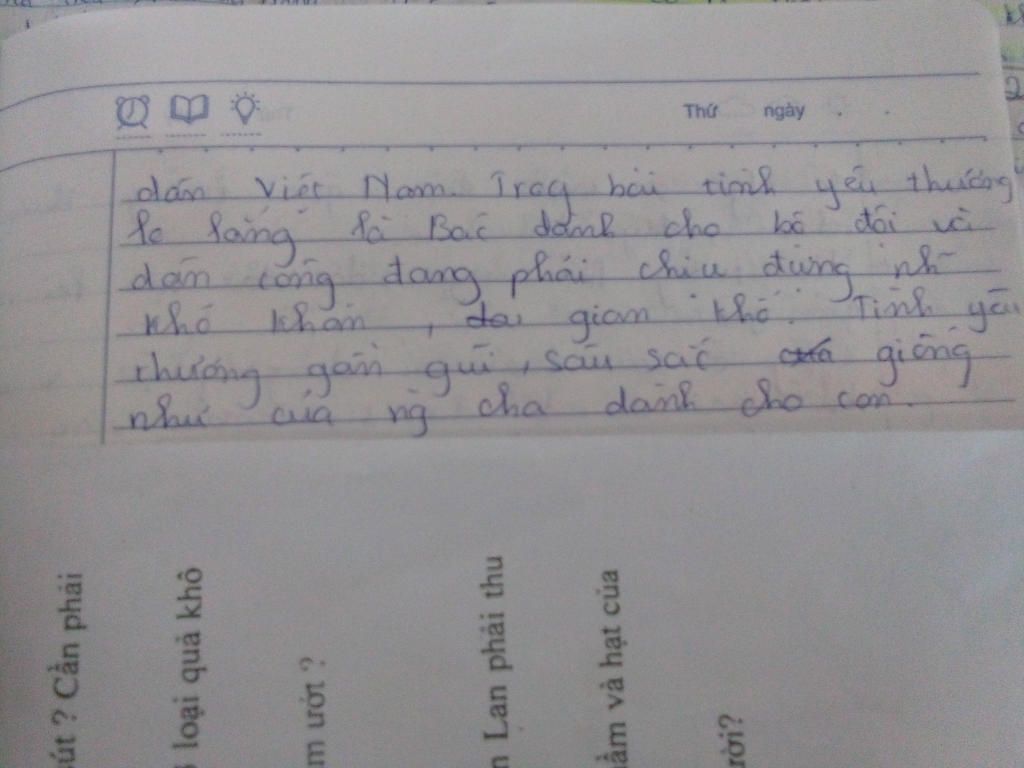 Thứ ngày
dân Việt Nam. Trog bài tình yêu thương
lo lắng là Bác dành cho bộ đội và
dân công đang phải chịu đựng nh~
khó khăn, gian khổ. Tình yêu
thương gần gũi, sâu sắc giống
như của ng cha dành cho con.
sút ? Cần phải
loại quả khô
m ướt ?
n Lan phải thu
ầm và hạt của
rời?